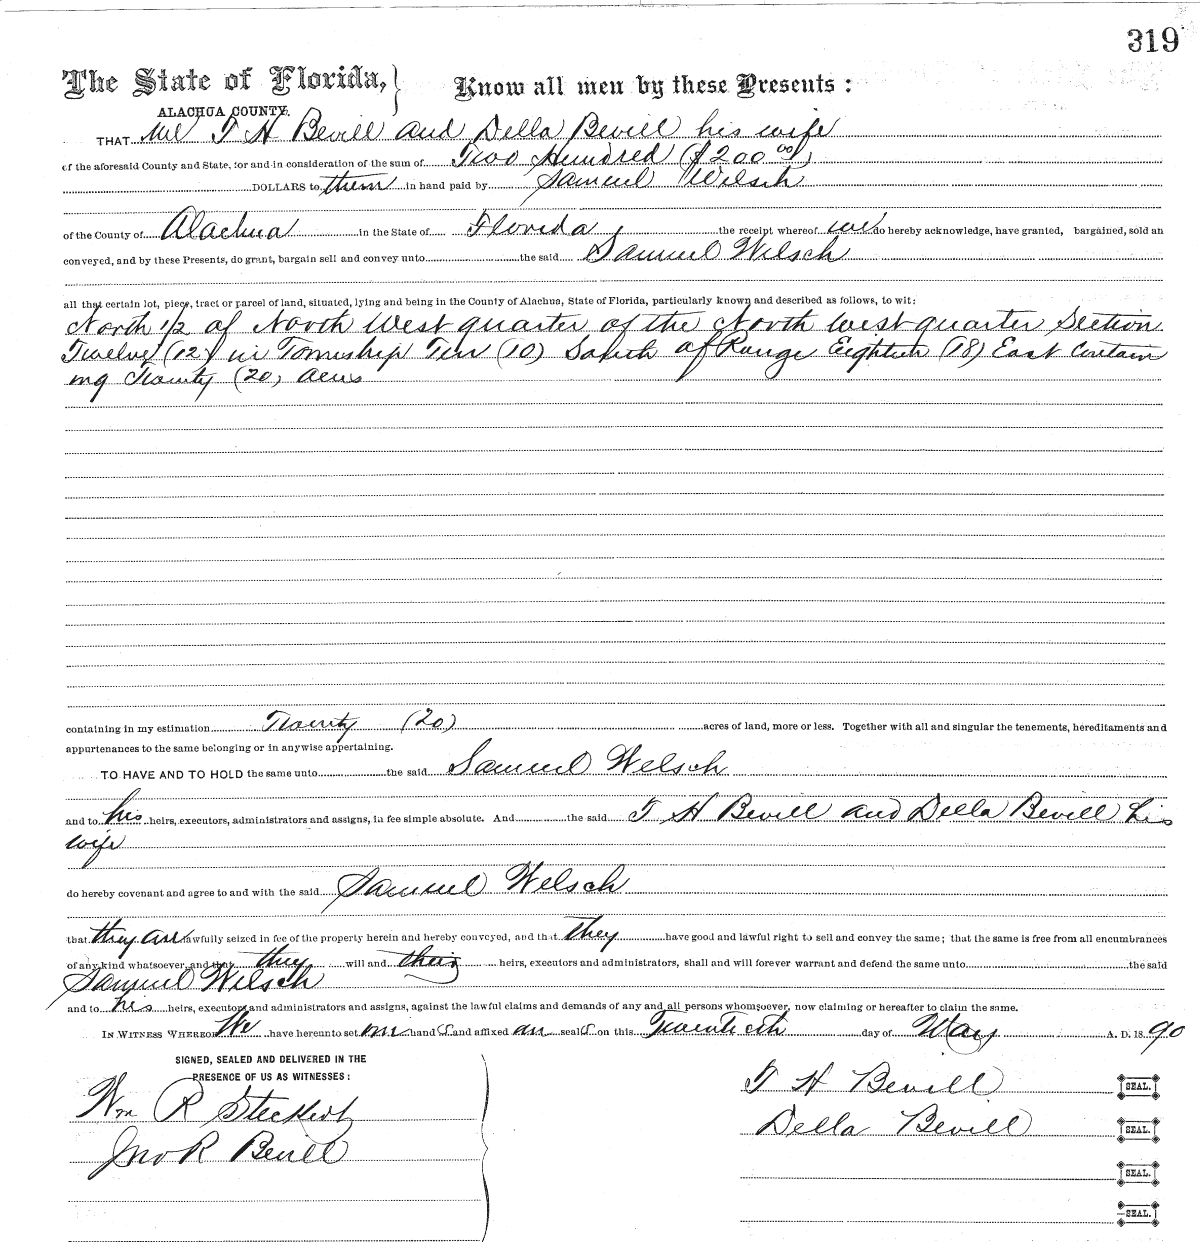 319
The State of Florida, } Know all men by these Presents:
ALACHUA COUNTY.
THAT We T H Bevill and Della Bevill his wife
of the aforesaid County and State, for and in consideration of the sum of Two Hundred ($200 00)
DOLLARS to them in hand paid by Samuel Welsch
of the County of Alachua in the State of Florida the receipt whereof we do hereby acknowledge, have granted, bargained, sold an
conveyed, and by these Presents, do grant, bargain sell and convey unto the said Samuel Welsch
all that certain lot, piece, tract or parcel of land, situated, lying and being in the County of Alachua, State of Florida, particularly known and described as follows, to wit:
North 1/2 of North West quarter of the North west quarter Section
Twelve (12) in Township Ten (10) South of Range Eighteen (18) East Contain
ing Twenty (20) acres
containing in my estimation Twenty (20) acres of land, more or less. Together with all and singular the tenements, hereditaments and
appurtenances to the same belonging or in anywise appertaining.
TO HAVE AND TO HOLD the same unto the said Samuel Welsch
and to his heirs, executors, administrators and assigns, in fee simple absolute. And the said T H Bevill and Della Bevill his
wife
do hereby covenant and agree to and with the said Samuel Welsch
that they are lawfully seized in fee of the property herein and hereby conveyed, and that they have good and lawful right to sell and convey the same; that the same is free from all encumbrances
of any kind whatsoever, and that they will and their heirs, executors and administrators, shall and will forever warrant and defend the same unto the said
Samuel Welsch
and to his heirs, executors and administrators and assigns, against the lawful claims and demands of any and all persons whomsoever, now claiming or hereafter to claim the same.
IN WITNESS WHEREOF We have hereunto set our hands and affixed our seals on this Twentieth day of May A. D. 18 90
SIGNED, SEALED AND DELIVERED IN THE
PRESENCE OF US AS WITNESSES:
T H Bevill SEAL.
Wm R Steckert
Della Bevill SEAL.
Jno R Bevill
SEAL.
SEAL.